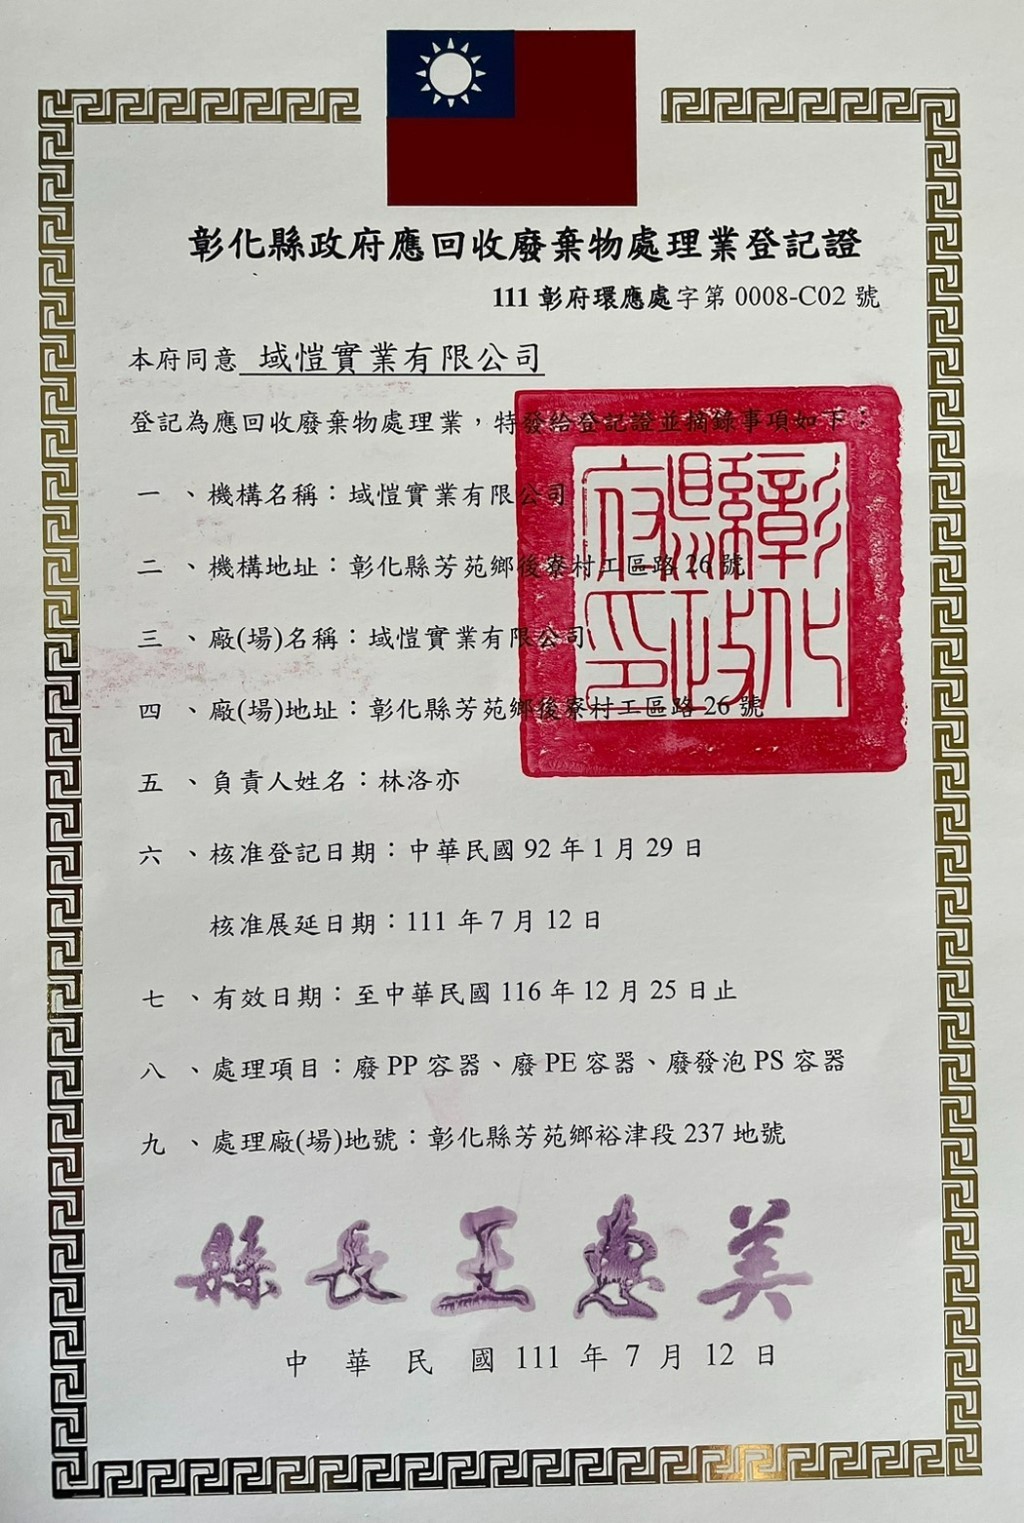 彰化縣政府應回收廢棄物處理業登記證
111 彰府環應處字第 0008-C02 號
本府同意 域愷實業有限公司
登記為應回收廢棄物處理業，特發給登記證並摘錄事項如下：
一、機構名稱：域愷實業有限公司
二、機構地址：彰化縣芳苑鄉後寮村工區路 26 號
三、廠(場)名稱：域愷實業有限公司
四、廠(場)地址：彰化縣芳苑鄉後寮村工區路 26 號
彰化縣政府印
五、負責人姓名：林洛亦
六、核准登記日期：中華民國 92 年 1 月 29 日
核准展延日期：111 年 7 月 12 日
七、有效日期：至中華民國 116 年 12 月 25 日止
八、處理項目：廢 PP 容器、廢 PE 容器、廢發泡 PS 容器
九、處理廠(場)地號：彰化縣芳苑鄉裕津段 237 地號
縣長王惠美
中華民國 111 年 7 月 12 日